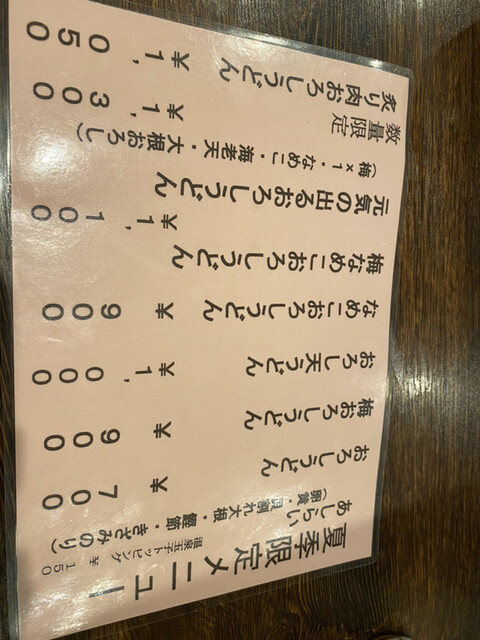 夏季限定メニュー
温泉玉子トッピング ¥150
あしらい
貝割れ大根・鰹節・きざみのり）
おろしうどん ¥700
梅おろしうどん ¥900
おろし天うどん ¥1,000
なめこおろしうどん ¥900
梅なめこおろしうどん ¥1,100
元気の出るおろしうどん
（梅×1・なめこ・海老天・大根おろし） ¥1,300
数量限定
炙り肉おろしうどん ¥1,050